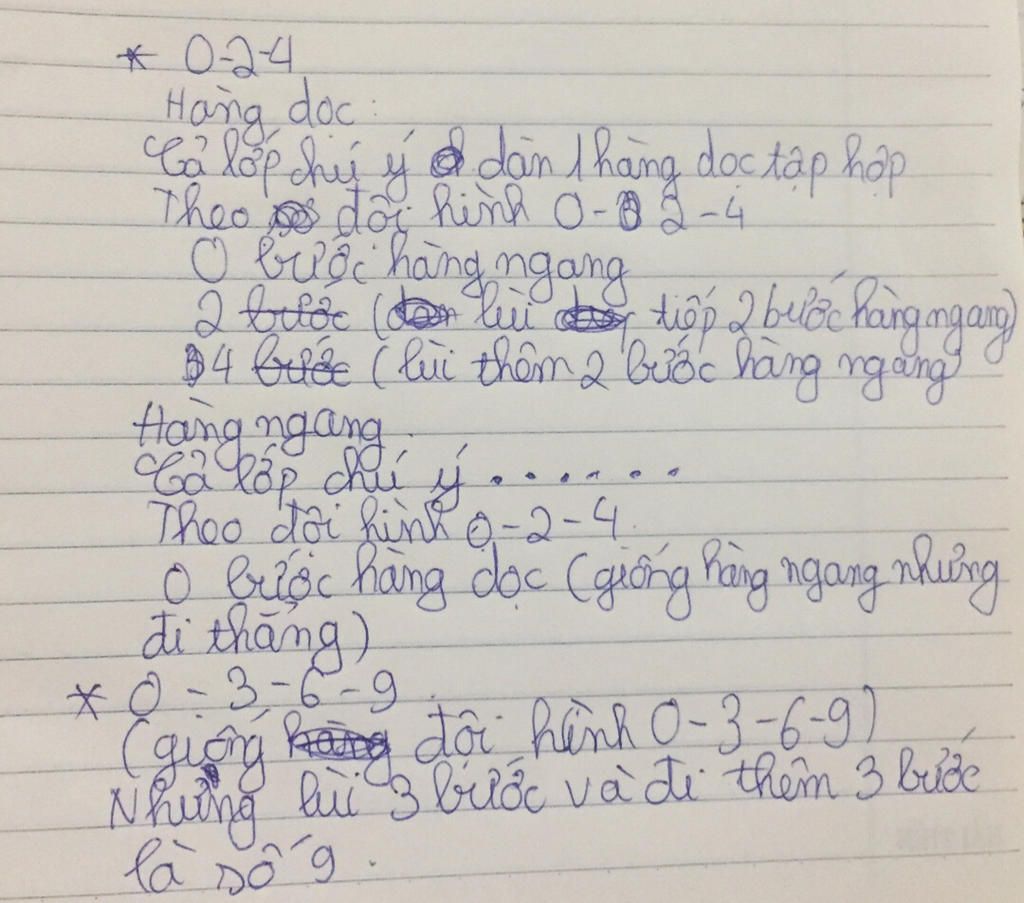 * 0-2-4
Hàng dọc:
Cả lớp chú ý dàn 1 hàng dọc tập hợp
Theo đội hình 0- 2-4
0 bước hàng ngang
2 bước (lùi tiếp 2 bước hàng ngang)
4 bước (lùi thêm 2 bước hàng ngang)
Hàng ngang.
Cả lớp chú ý.......
Theo đội hình 0-2-4.
0 bước hàng dọc (giống hàng ngang nhưng
đi thẳng)
* 0-3-6-9.
(giống đội hình 0-3-6-9)
Nhưng lùi 3 bước và đi thêm 3 bước
là số 9.